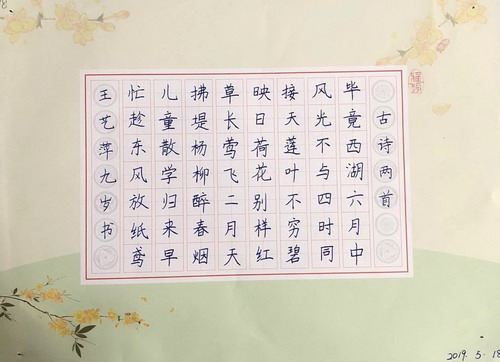 古诗两首
毕竟西湖六月中
风光不与四时同
接天莲叶不穷碧
映日荷花别样红
草长莺飞二月天
拂堤杨柳醉春烟
儿童散学归来早
忙趁东风放纸鸢
王艺萍九岁书
2019. 5. 18